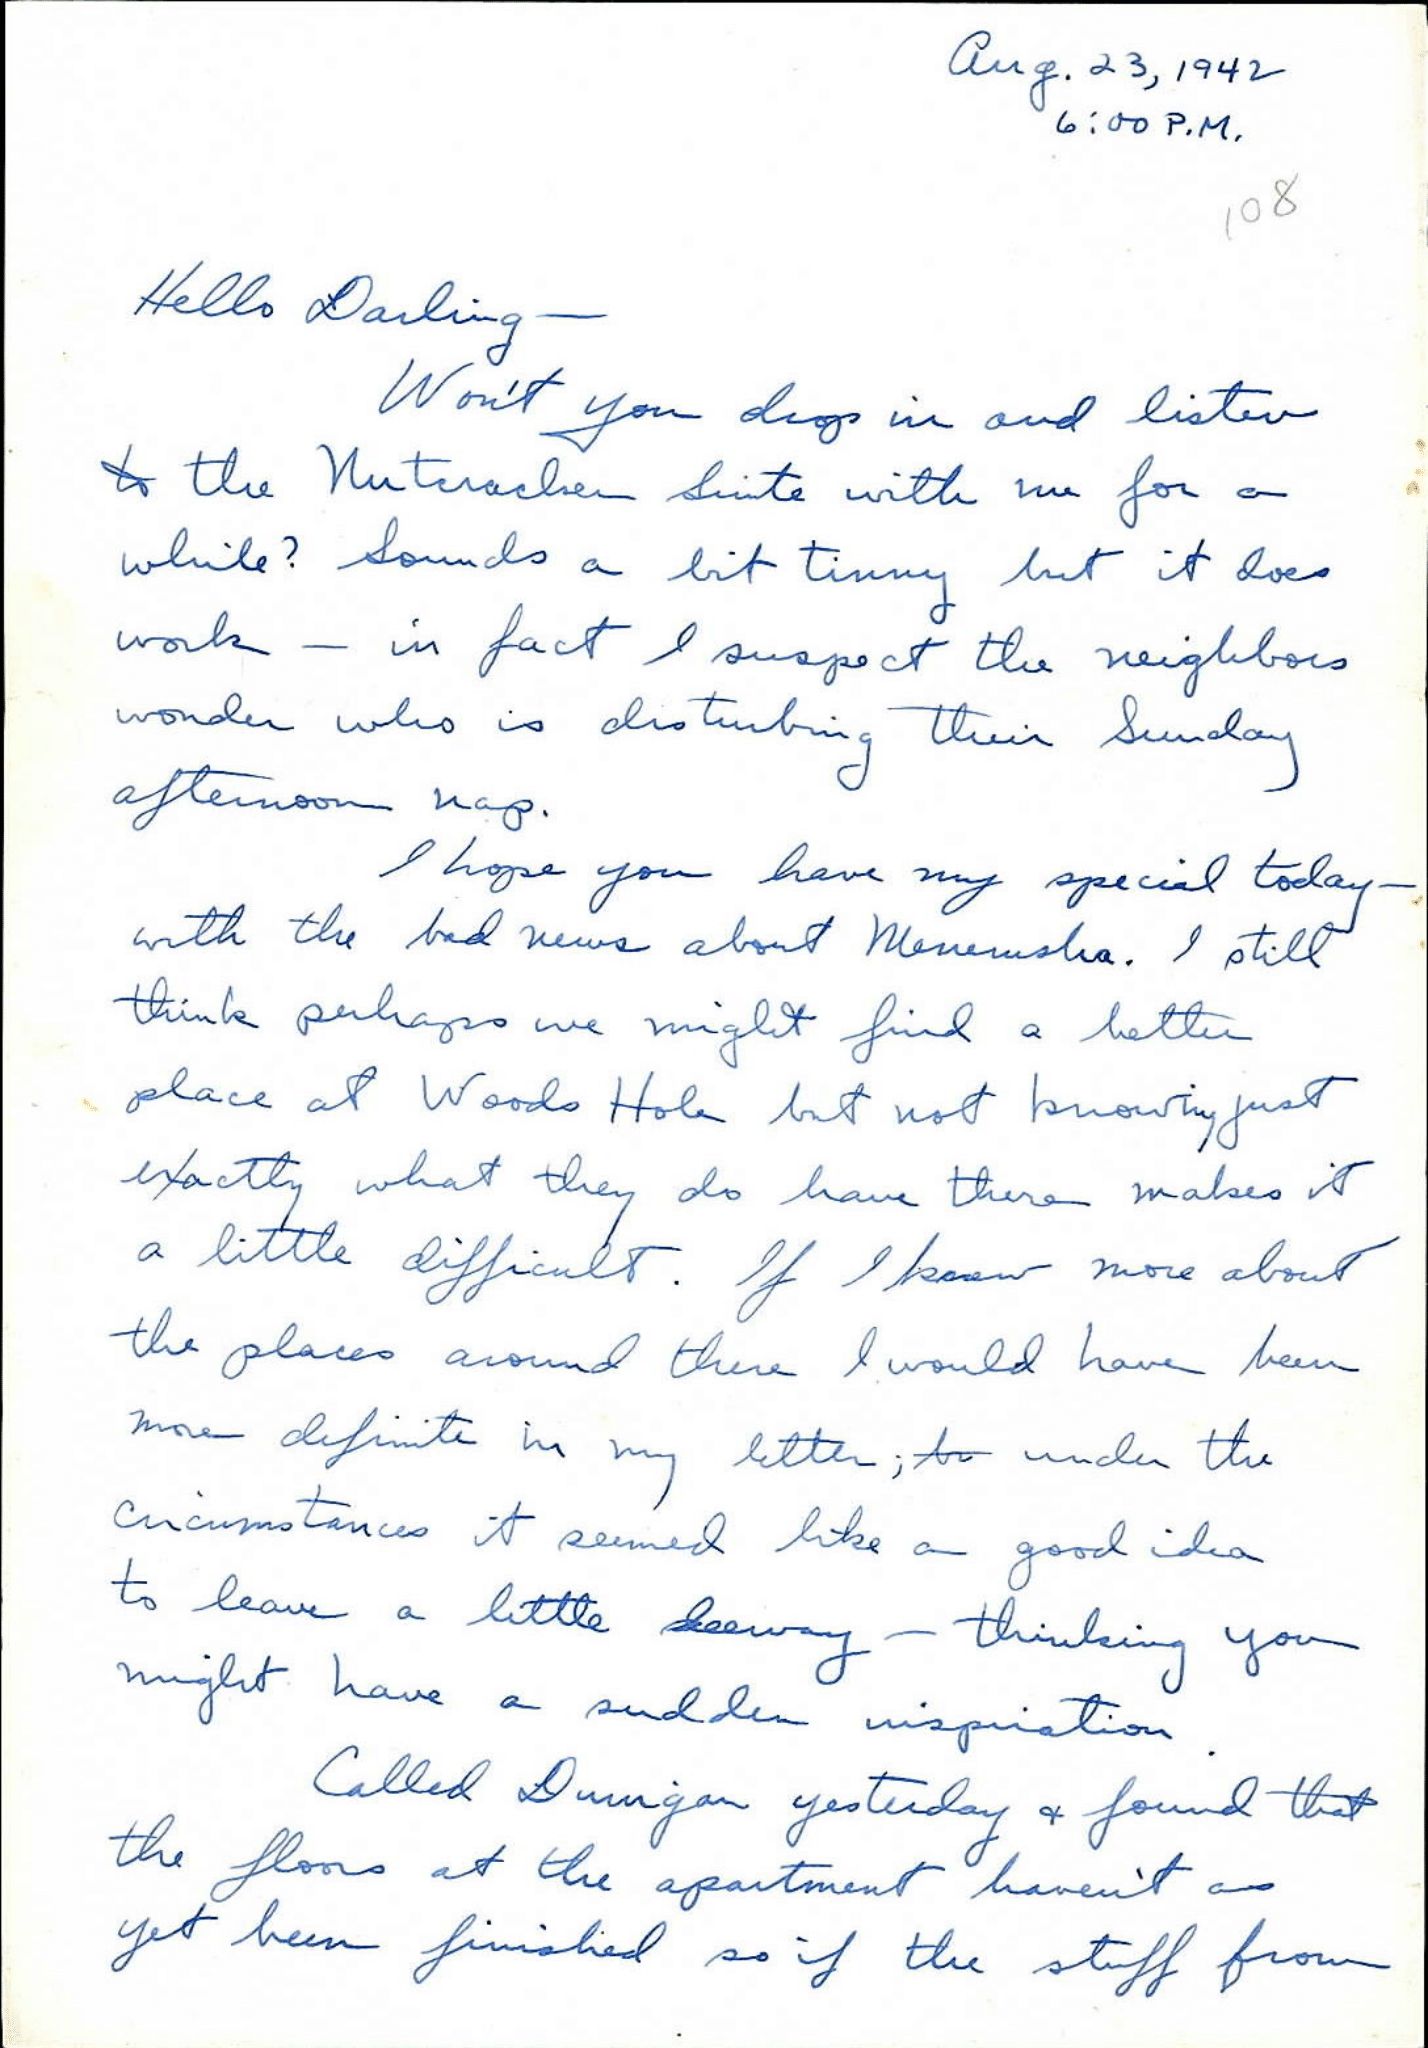 Aug. 23, 1942
6:00 P.M.
108
Hello Darling —
Won't you drop in and listen
to the Nutcracker Suite with me for a
while? Sounds a bit tinny but it does
work — in fact I suspect the neighbors
wonder who is disturbing their Sunday
afternoon nap.
I hope you have my special today —
with the bad news about Menemsha. I still
think perhaps we might find a better
place at Woods Hole but not knowing just
exactly what they do have there makes it
a little difficult. If I knew more about
the places around there I would have been
more definite in my letter; under the
circumstances it seemed like a good idea
to leave a little leeway — thinking you
might have a sudden inspiration.
Called Dunigan yesterday & found that
the floors at the apartment haven't as
yet been finished so if the stuff from